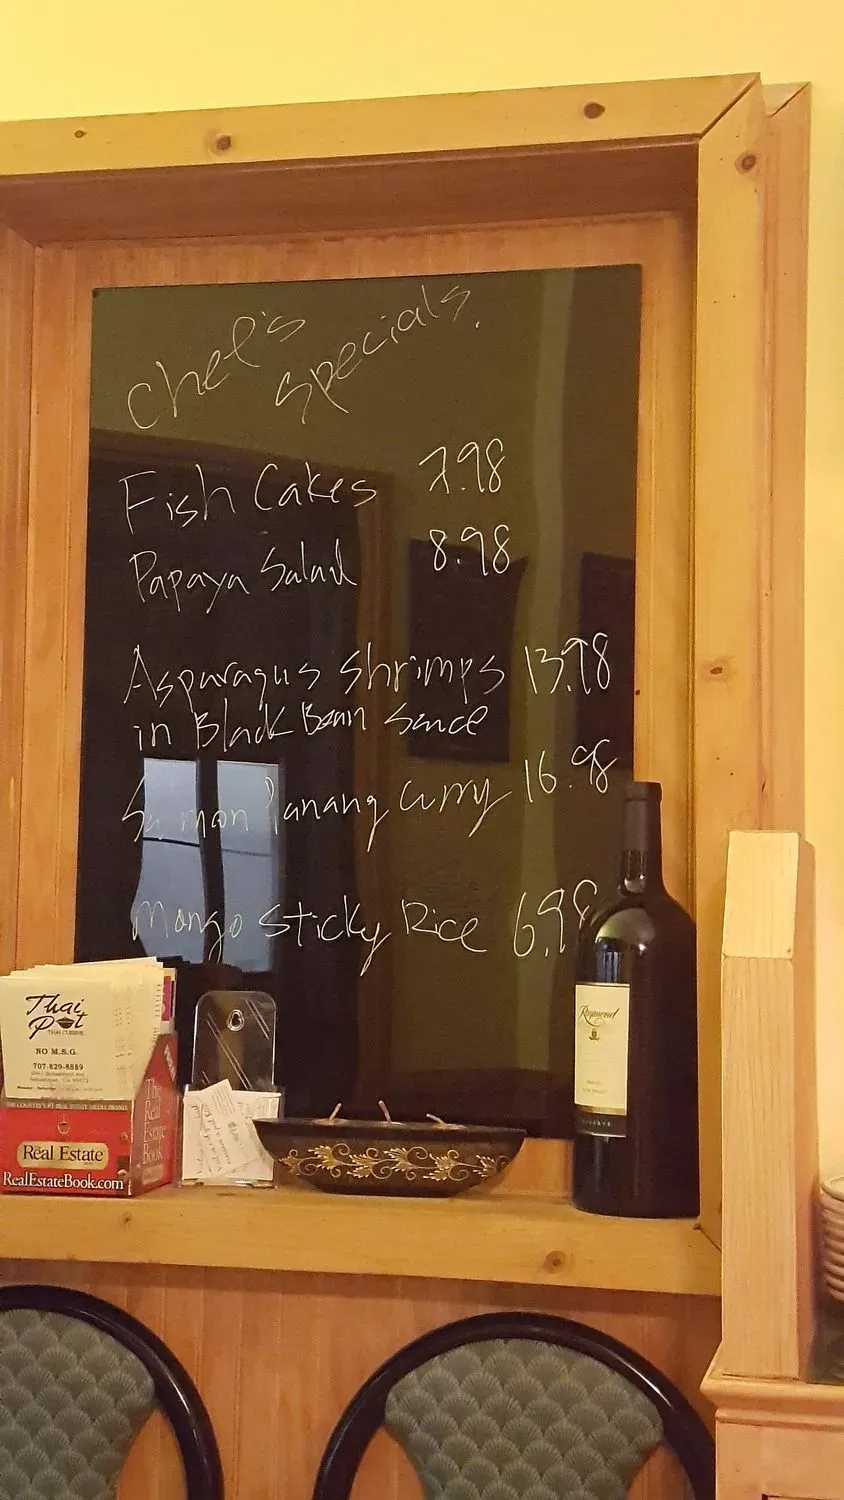 Chef's
Specials.
Fish Cakes 7.98
Papaya Salad 8.98
Asparagus shrimps 13.98
in Black Bean Sauce
Salmon Panang Curry 16.98
Mango Sticky Rice 6.98
Thai
Pot
THAI CUISINE
NO M.S.G.
707-829-8889
THE COUNTRY'S #1 REAL ESTATE MEDIA BRAND
The
Real Estate
RealEstateBook.com
The
Real
Estate
Book
Raymond
RESERVE